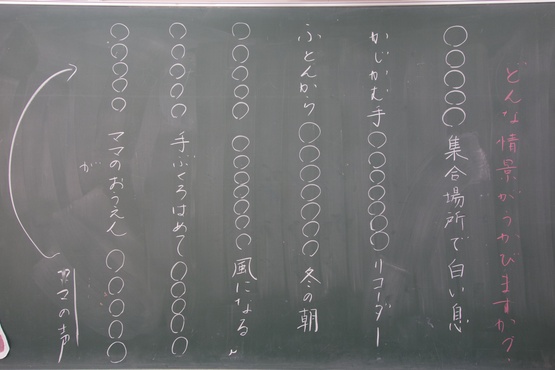 どんな情景がうかびますか?
○○○○○ 集合場所で白い息
かじかむ手○○○○○○○リコーダー
ふとんから○○○○○○○冬の朝
○○○○○ ○○○○○○○風になる
○○○○○ 手ぶくろはめて○○○○○
○○○○○ ママのおうえん○○○○○
が
マの声